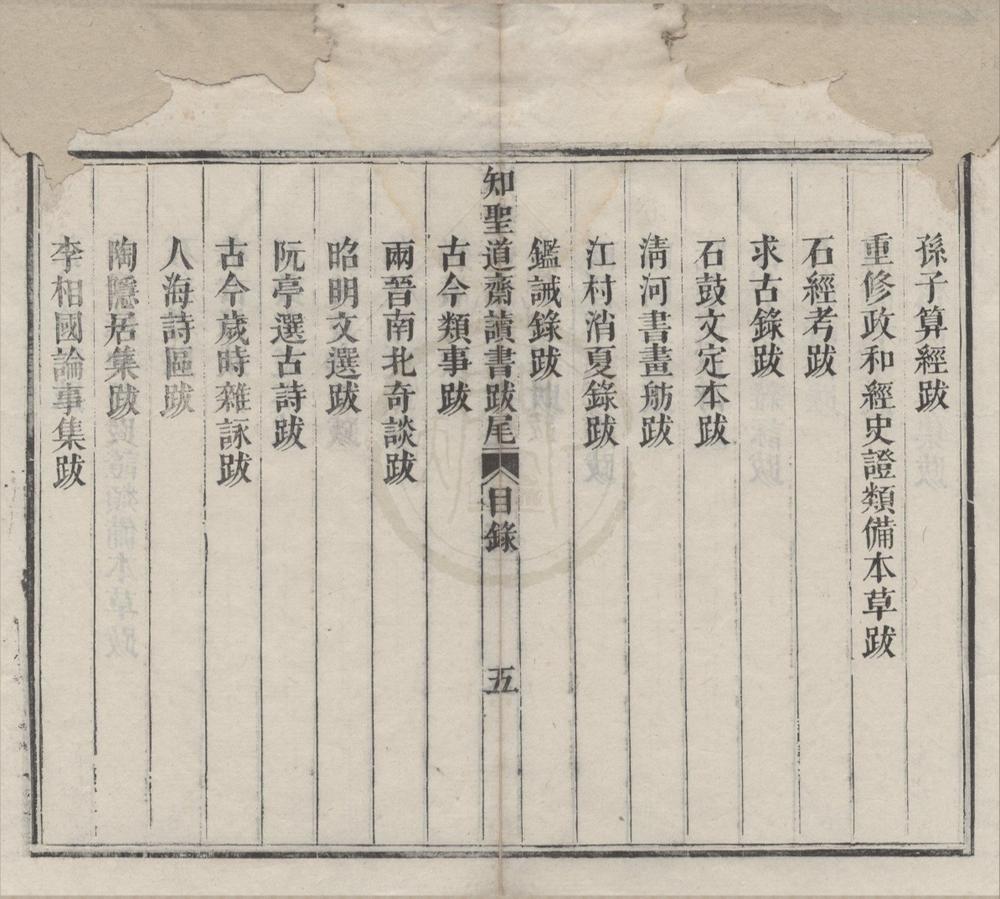 孫子算經跋
重修政和經史證類備本草跋
石經考跋
求古錄跋
石鼓文定本跋
淸河書畫舫跋
江村消夏錄跋
鑑誡錄跋
知聖道齋讀書跋尾 目錄 五
古今類事跋
兩晉南北奇談跋
昭明文選跋
阮亭選古詩跋
古今歲時雜詠跋
人海詩區跋
陶隱居集跋
李相國論事集跋